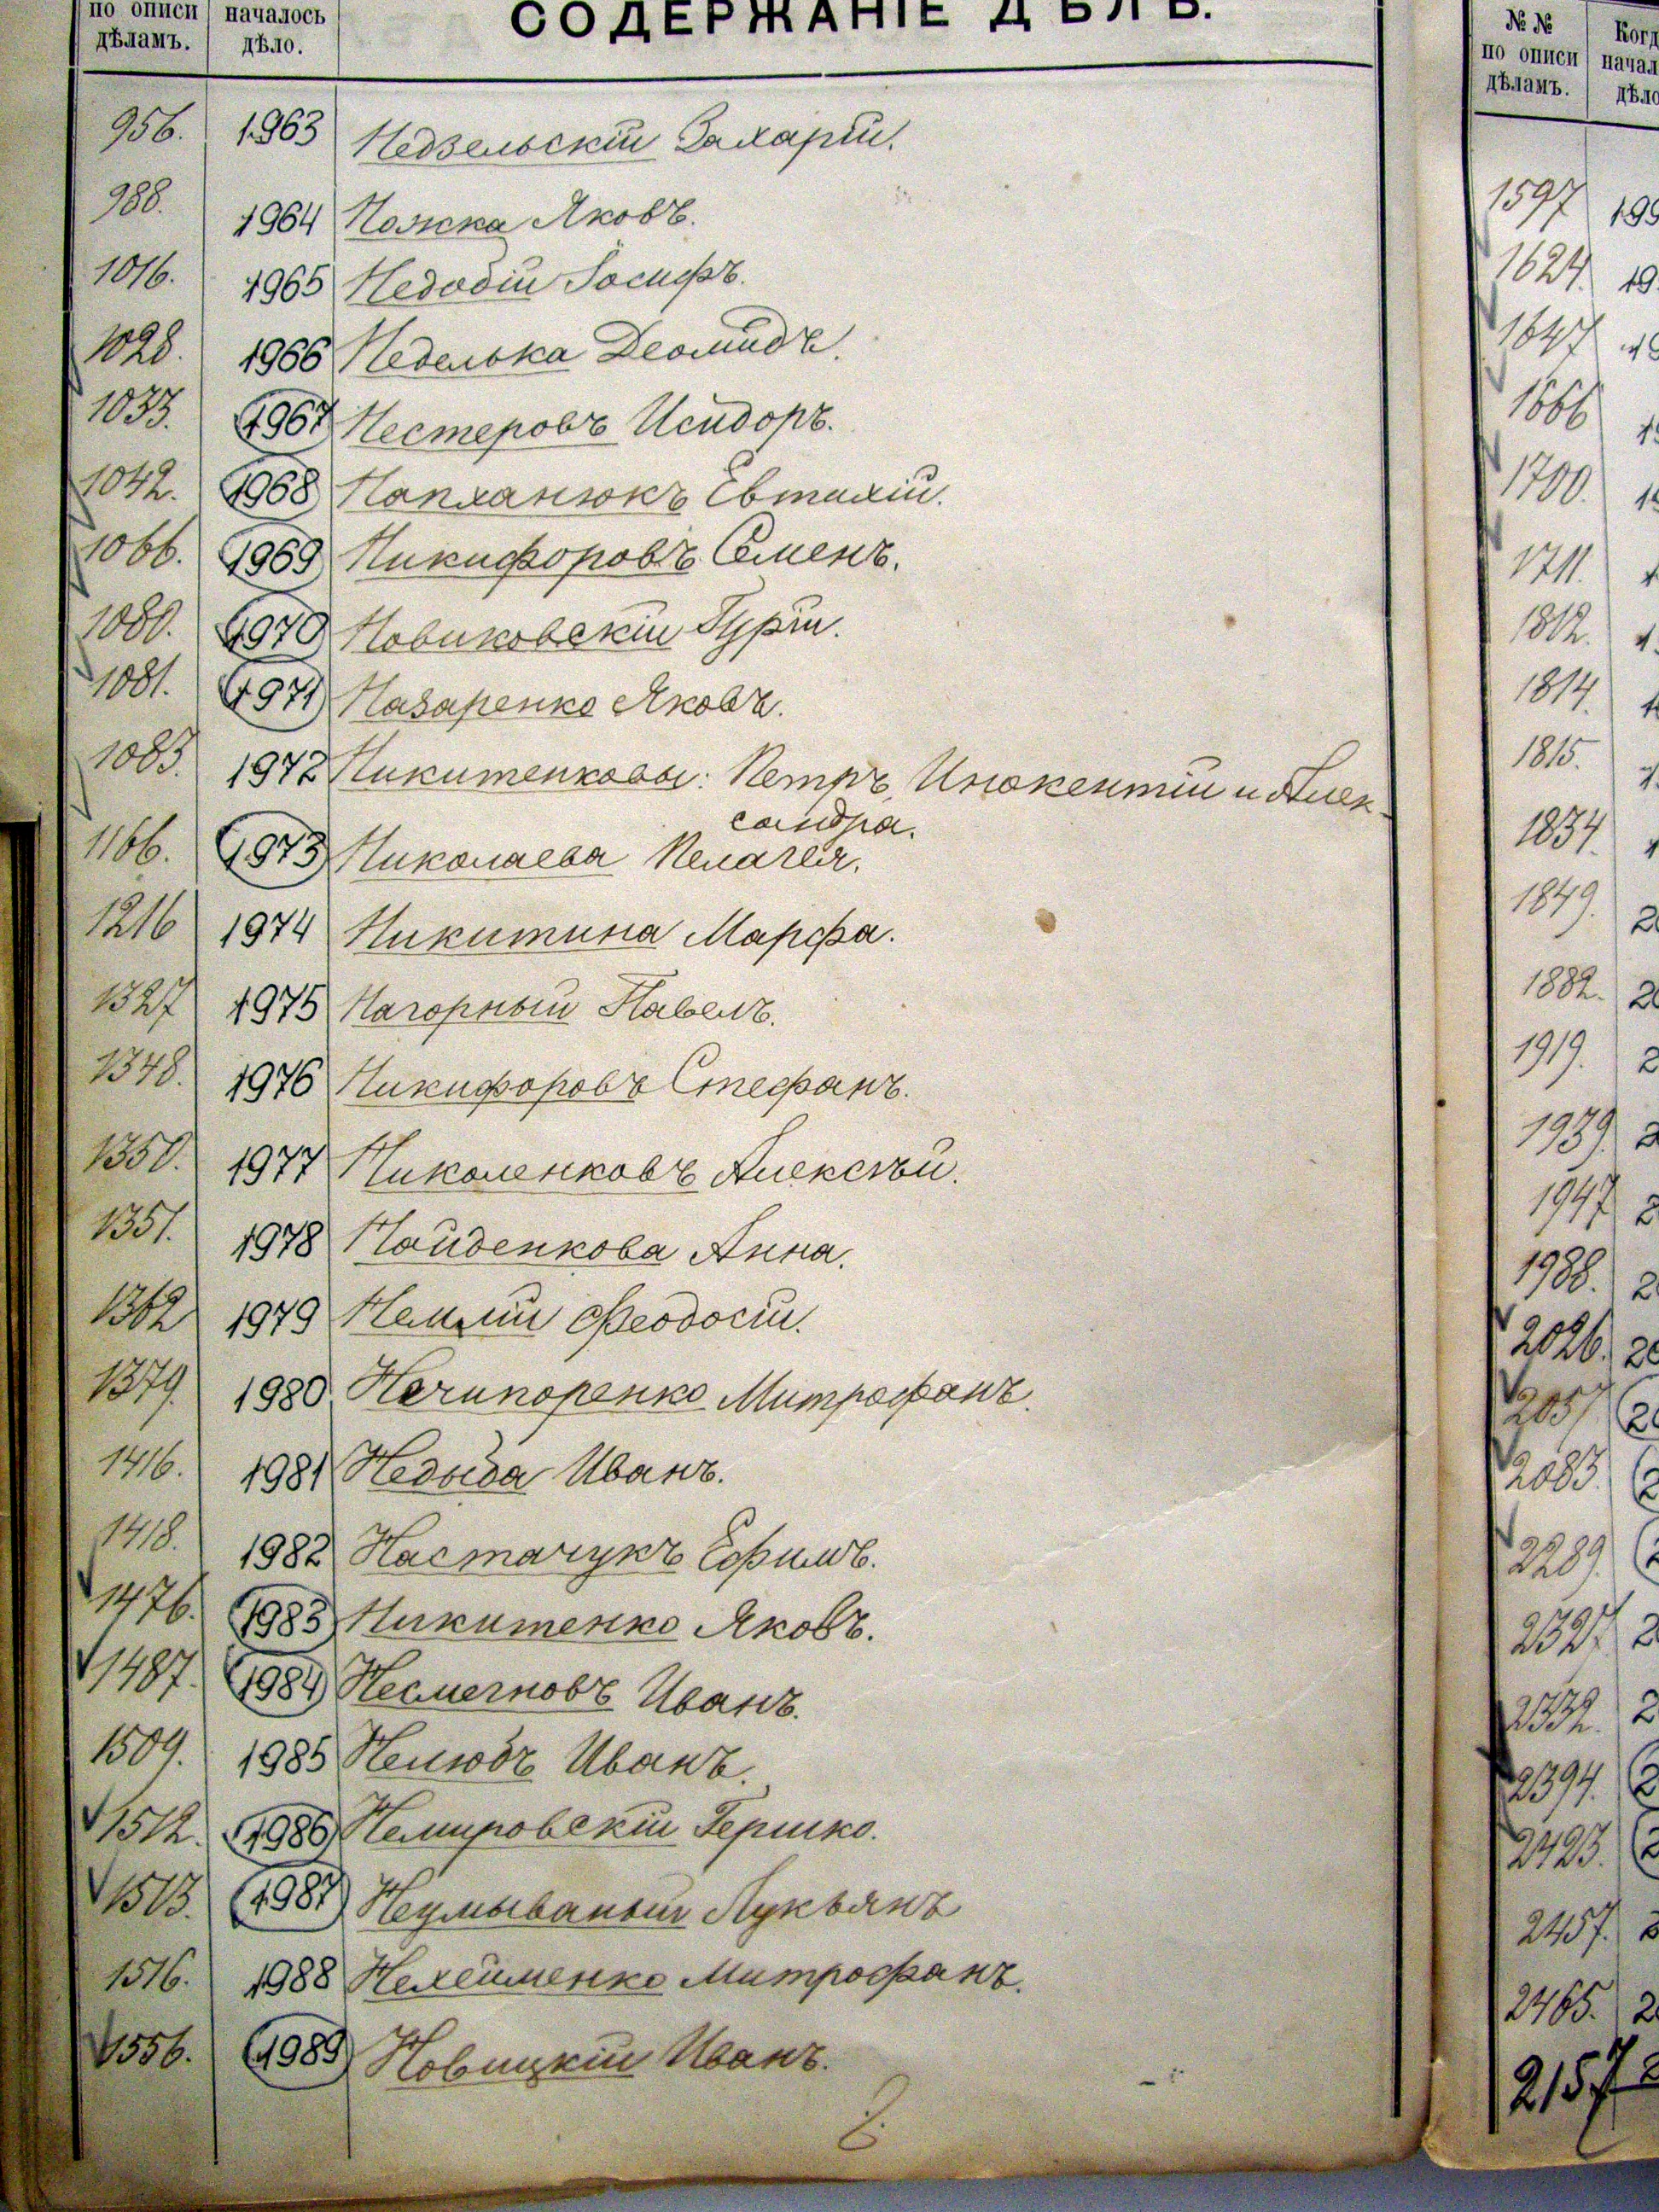 по описи началось СОДЕРЖАНІЕ ДѢЛЪ.
дѣламъ. дѣло.
956. 1963 Недзельскій Захарій.
988. 1964 Ножка Яковъ.
1016. 1965 Недобій Іосифъ.
1028. 1966 Неделька Деомидъ.
1033. 1967 Нестеровъ Исидоръ.
1042. 1968 Напханюкъ Евтихій.
1066. 1969 Никифоровъ Семенъ.
1080. 1970 Новиковскій Гурій.
1081. 1971 Назаренко Яковъ.
1083. 1972 Никитенковы: Петръ, Инокентій и Алек-
сандра.
1166. 1973 Николаева Пелагея.
1216 1974 Никитина Марфа.
1327 1975 Нагорный Павелъ.
1348. 1976 Никифоровъ Стефанъ.
1350. 1977 Николенковъ Алексѣй.
1351. 1978 Найденкова Анна.
1362 1979 Феодосій.
1379. 1980 Нечипоренко Митрофанъ.
1416. 1981 Недыба Иванъ.
1418. 1982 Настачукъ Ефимъ.
1476. 1983 Никитенко Яковъ.
1487. 1984 Иванъ.
1509. 1985 Нелюбъ Иванъ.
1512. 1986 Немировскій Гершко.
1513. 1987 Неумываный Лукьянъ
1516. 1988 Нехейменко Митрофанъ.
1556. 1989 Новицкій Иванъ.
№ №
по описи
дѣламъ.
1597
1624.
1647
1666
1700.
1711.
1812.
1814.
1815.
1834.
1849.
1882.
1919.
1939.
1947
1988.
2026.
2057
2083.
2289.
2327.
2332.
2394.
2423.
2457.
2465.
2157